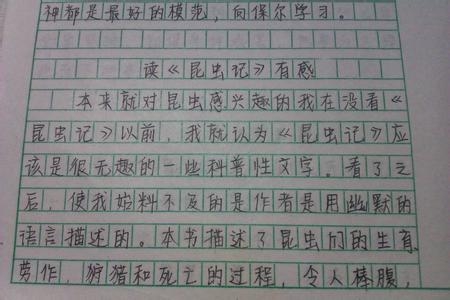 神都是最好的模范，向保尔学习。
读《昆虫记》有感
本来就对昆虫感兴趣的我在没看《
昆虫记》以前，我就认为《昆虫记》应
该是很无趣的一些科普性文字。看了之
后，使我始料不及的是作者是用幽默的
语言描述的。本书描述了昆虫们的生育、
劳作，狩猎和死亡的过程，令人棒腹，